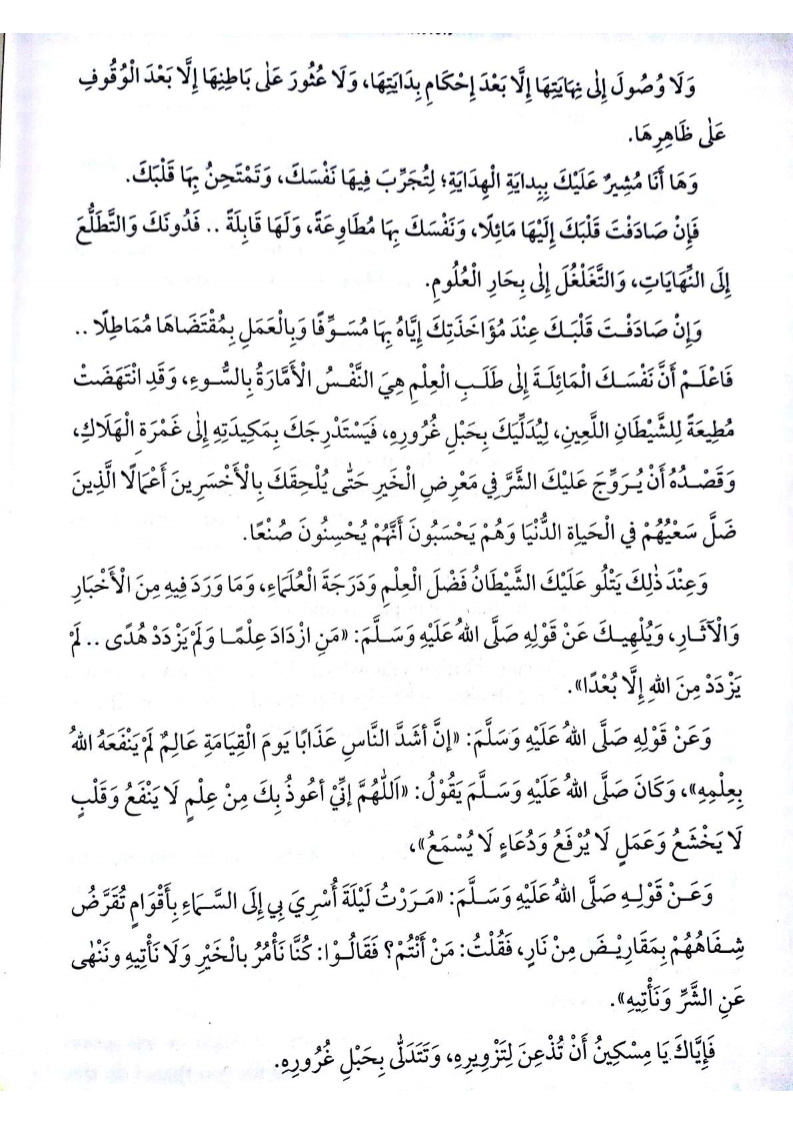 وَلَا وُصُولَ إِلٰى نِهَايَتِهَا إِلَّا بَعْدَ إِحْكَامِ بِدَايَتِهَا، وَلَا عُثُورَ عَلٰى بَاطِنِهَا إِلَّا بَعْدَ الْوُقُوفِ
عَلٰى ظَاهِرِهَا.
وَهَا أَنَا مُشِيرٌ عَلَيْكَ بِبِدايَةِ الْهِدَايَةِ؛ لِتُجَرِّبَ فِيهَا نَفْسَكَ، وَتَمْتَحِنُ بِهَا قَلْبَكَ.
فَإِنْ صَادَفْتَ قَلْبَكَ إِلَيْهَا مَائِلًا، وَنَفْسَكَ بِهَا مُطَاوِعَةً، وَلَهَا قَابِلَةً .. فَدُونَكَ وَالتَّطَلُّعَ
إِلَى النِّهَايَاتِ، وَالتَّغَلْغُلَ إِلٰى بِحَارِ الْعُلُومِ.
وَإِنْ صَادَفْتَ قَلْبَكَ عِنْدَ مُؤَاخَذَتِكَ إِيَّاهُ بِهَا مُسَوِّفًا وَبِالْعَمَلِ بِمُقْتَضَاهَا مُمَاطِلًا ..
فَاعْلَمْ أَنَّ نَفْسَكَ الْمَائِلَةَ إِلٰى طَلَبِ الْعِلْمِ هِيَ النَّفْسُ الْأَمَّارَةُ بِالسُّوءِ، وَقَدِ انْتَهَضَتْ
مُطِيعَةً لِلشَّيْطَانِ اللَّعِينِ، لِيُدَلِّيَكَ بِحَبْلِ غُرُورِهِ، فَيَسْتَدْرِجَكَ بِمَكِيدَتِهِ إِلٰى غَمْرَةِ الْهَلَاكِ،
وَقَصْدُهُ أَنْ يُرَوِّجَ عَلَيْكَ الشَّرَّ فِي مَعْرِضِ الْخَيرِ حَتّٰى يُلْحِقَكَ بِالْأَخْسَرِينَ أَعْمَالًا الَّذِينَ
ضَلَّ سَعْيُهُمْ في الْحَيَاةِ الدُّنْيَا وَهُمْ يَحْسَبُونَ أَنَّهُمْ يُحْسِنُونَ صُنْعًا.
وَعِنْدَ ذٰلِكَ يَتْلُو عَلَيْكَ الشَّيْطَانُ فَضْلَ الْعِلْمِ وَدَرَجَةَ الْعُلَمَاءِ، وَمَا وَرَدَ فِيهِ مِنَ الْأَخْبَارِ
وَالْآثَارِ، وَيُلْهِيكَ عَنْ قَوْلِهِ صَلَّى اللهُ عَلَيْهِ وَسَلَّمَ: «مَنِ ازْدَادَ عِلْمًا وَلَمْ يَزْدَدْ هُدًى .. لَمْ
يَزْدَدْ مِنَ اللهِ إِلَّا بُعْدًا».
وَعَنْ قَوْلِهِ صَلَّى اللهُ عَلَيْهِ وَسَلَّمَ: «إنَّ أشَدَّ النَّاسِ عَذَابًا يَومَ الْقِيَامَةِ عَالِمٌ لَمْ يَنْفَعَهُ اللهُ
بِعِلْمِهِ»، وَكَانَ صَلَّى اللهُ عَلَيْهِ وَسَلَّمَ يَقُوْلُ: «اَللّٰهُمَّ إنِّيْ أعُوذُ بِكَ مِنْ عِلْمٍ لَا يَنْفَعُ وَقَلْبٍ
لَا يَخْشَعُ وَعَمَلٍ لَا يُرْفَعُ وَدُعَاءٍ لَا يُسْمَعُ»،
وَعَنْ قَوْلِهِ صَلَّى اللهُ عَلَيْهِ وَسَلَّمَ: «مَرَرْتُ لَيْلَةَ أُسْرِيَ بِي إِلَى السَّمَاءِ بِأَقْوَامٍ تُقَرَّضُ
شِفَاهُهُمْ بِمَقَارِيْضَ مِنْ نَارٍ، فَقُلْتُ: مَنْ أَنْتُمْ؟ فَقَالُوْا: كُنَّا نَأْمُرُ بالْخَيْرِ وَلَا نَأْتِيهِ ونَنْهٰى
عَنِ الشَّرِّ وَنَأْتِيهِ».
فَإِيَّاكَ يَا مِسْكِينُ أَنْ تُذْعِنَ لِتَزْوِيرِهِ، وَتَتَدَلّٰى بِحَبْلِ غُرُورِهِ.